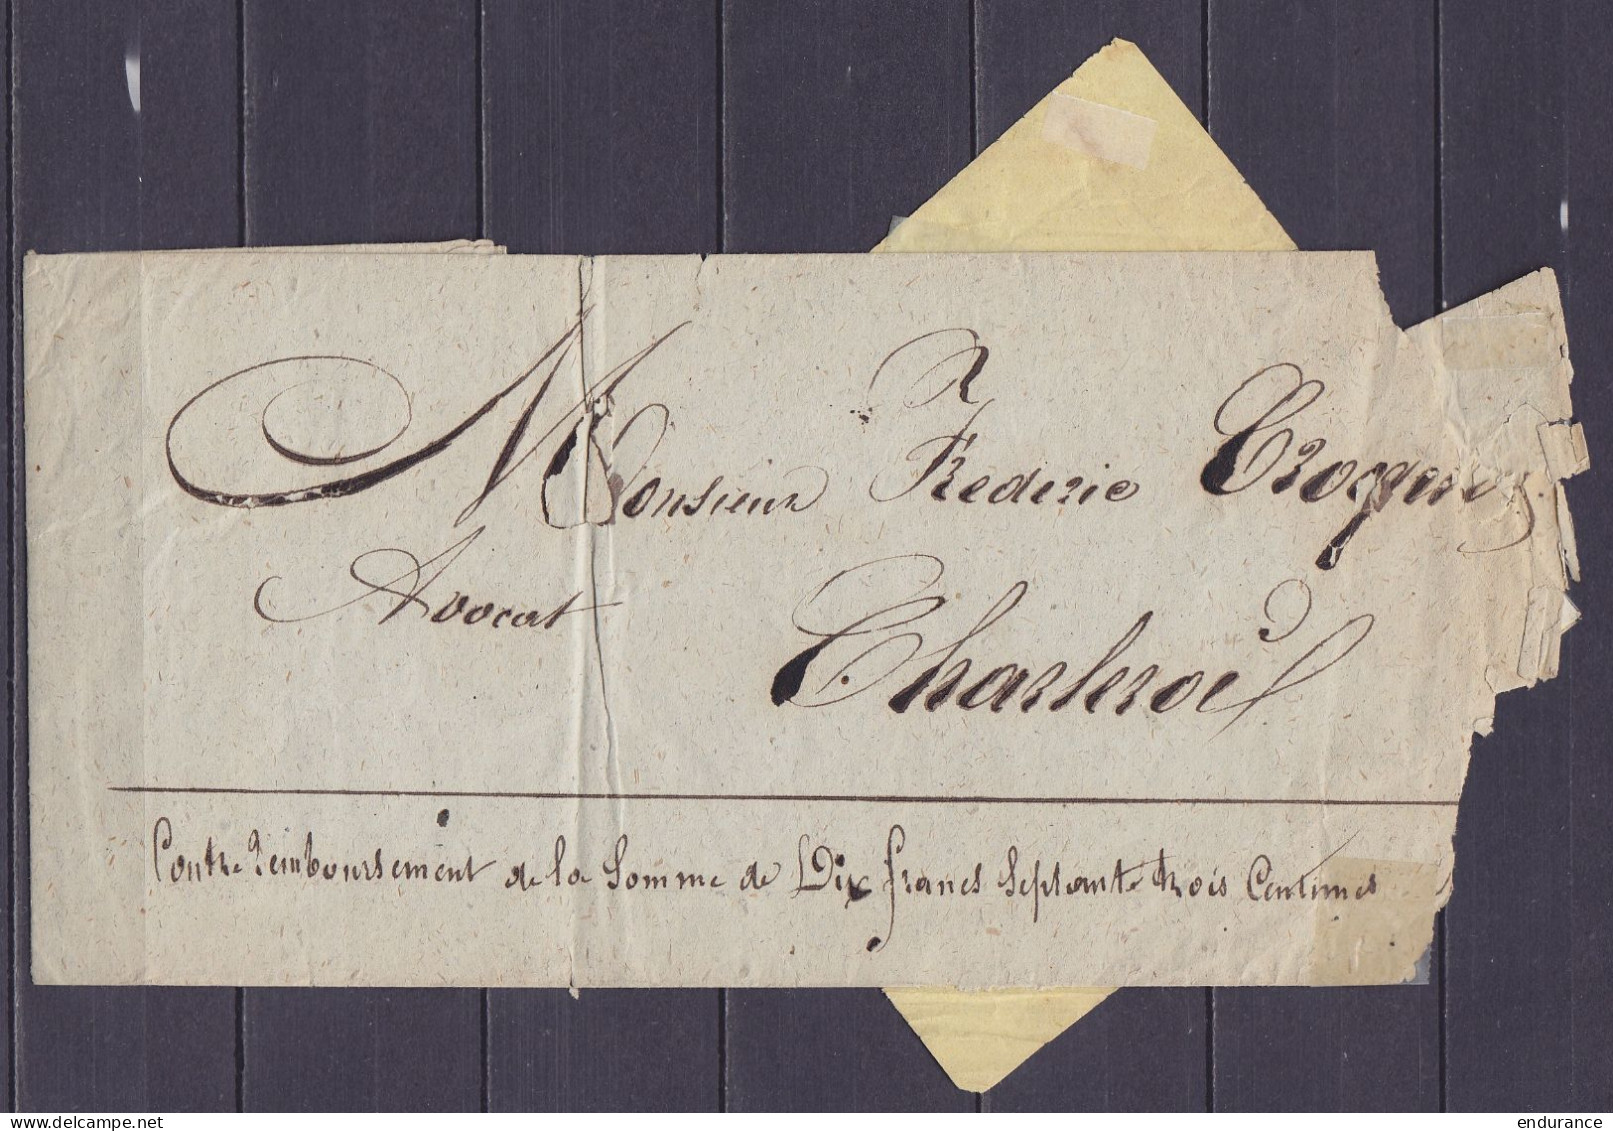 A
Monsieur Frederic Croquet
Avocat
à
Charleroi
Contre remboursement de la somme de Dix francs septante trois Centimes
www.delcampe.net
endurance